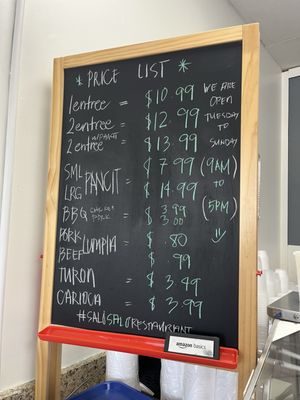 * PRICE LIST *
1entree = $10.99
2entree = $12.99
2entree W/PANCIT = $13.99
SML PANCIT = $7.99
LRG $14.99
BBQ CHICKEN = $3.99
PORK $3.00
PORK LUMPIA = $.80
BEEF $.99
TURON = $3.49
CARIOCA = $3.99
#SALOSALORESTAURANT
WE ARE
OPEN
TUESDAY
TO
SUNDAY
(9AM)
TO
(5PM)
amazon basics